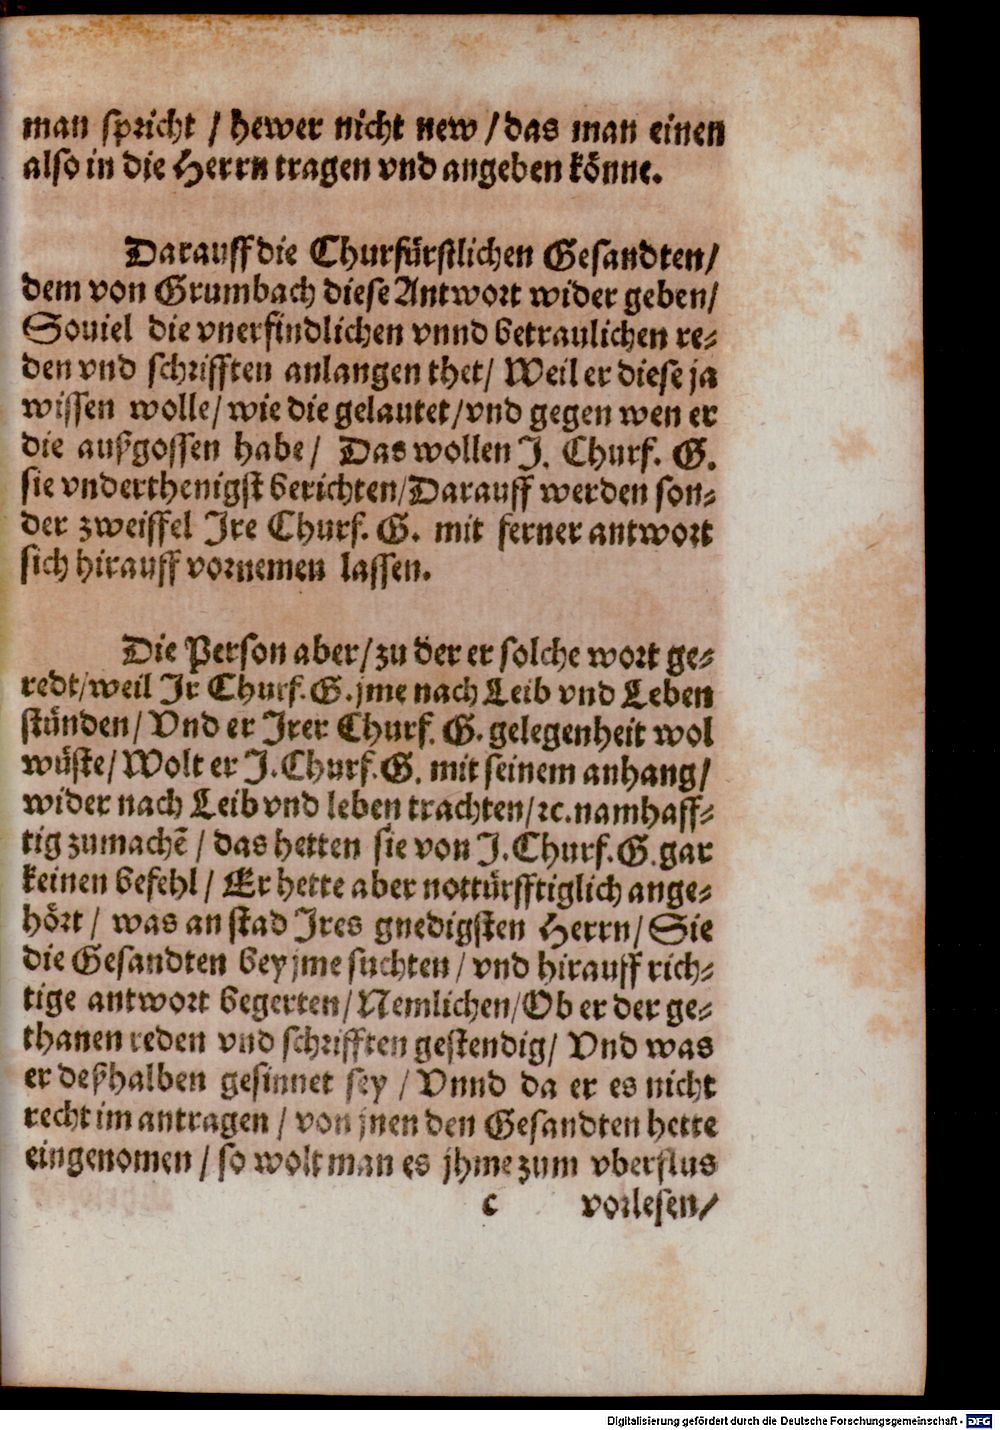 man spricht / hewer nicht new / das man einen
also in die Herrn tragen vnd angeben könne.
Darauff die Churfürstlichen Gesandten /
dem von Grumbach diese Antwort wider geben /
Souiel die vnerfindlichen vnnd betraulichen re⸗
den vnd schrifften anlangen thet / Weil er diese ja
wissen wolle / wie die gelautet / vnd gegen wen er
die außgossen habe / Das wollen J. Churf. G.
sie vnderthenigst berichten / Darauff werden son⸗
der zweiffel Jre Churf. G. mit ferner antwort
sich hirauff vornemen lassen.
Die Person aber / zu der er solche wort ge⸗
redt / weil Jr Churf. G. jme nach Leib vnd Leben
stünden / Vnd er Jrer Churf. G. gelegenheit wol
wüste / Wolt er J. Churf. G. mit seinem anhang /
wider nach Leib vnd leben trachten / ꝛc. namhaff⸗
tig zumachẽ / das hetten sie von J. Churf. G. gar
keinen befehl / Er hette aber nottürfftiglich ange⸗
hört / was an stad Jres gnedigsten Herrn / Sie
die Gesandten bey jme suchten / vnd hirauff rich⸗
tige antwort begerten / Nemlichen / Ob er der ge⸗
thanen reden vnd schrifften gestendig / Vnd was
er deßhalben gesinnet sey / Vnnd da er es nicht
recht im antragen / von jnen den Gesandten hette
eingenomen / so wolt man es jhme zum vberflus
c vorlesen /
Digitalisierung gefördert durch die Deutsche Forschungsgemeinschaft - DFG